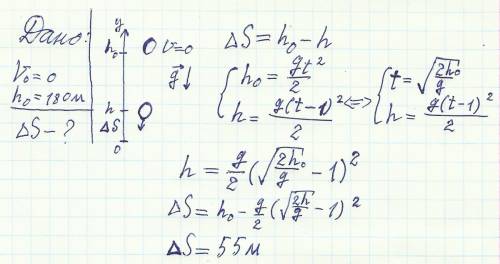 Дано:
V₀ = 0
h₀ = 180м
ΔS - ?
y
h₀
V=0
g↓
h
ΔS
0
ΔS = h₀ - h
{ h₀ = gt²/2
h = g(t-1)²/2 <=> { t = √(2h₀/g)
h = g(t-1)²/2
h = g/2 (√(2h₀/g) - 1)²
ΔS = h₀ - g/2 (√(2h/g) - 1)²
ΔS = 55м